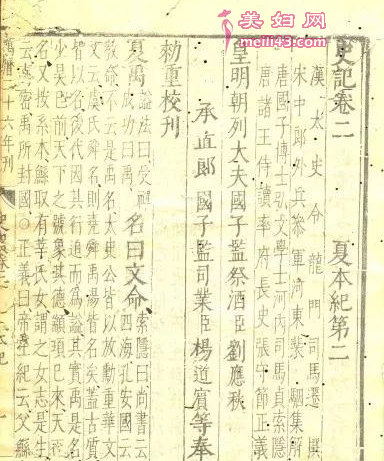 美妇网
meili43.com
史記卷二 夏本紀第二
漢太史令龍門司馬遷撰
宋中郎外兵參軍河東裴駰集解
唐國子博士弘文學士河内司馬貞索隱
唐諸王侍讀率府長史張守節正義
皇明朝列大夫國子監祭酒臣劉應秋
承直郎國子監司業臣楊道賓等奉
勑重校刊
夏禹 謚法曰受禪成功曰禹 名曰文命 索隱曰尚書云 四海孔安國云
敎命不云是禹名太史公皆以放勳重華文
文云虞氏舜名則堯舜禹湯皆名矣蓋古質
者以名後代因其行追而爲謚其實禹是名
少昊巳前天下之號象其德顓頊巳來天
名又按系本鯀取有莘氏女謂之女志是生
云高密禹所封國○正義曰帝王紀云父鯀
二十六年刊